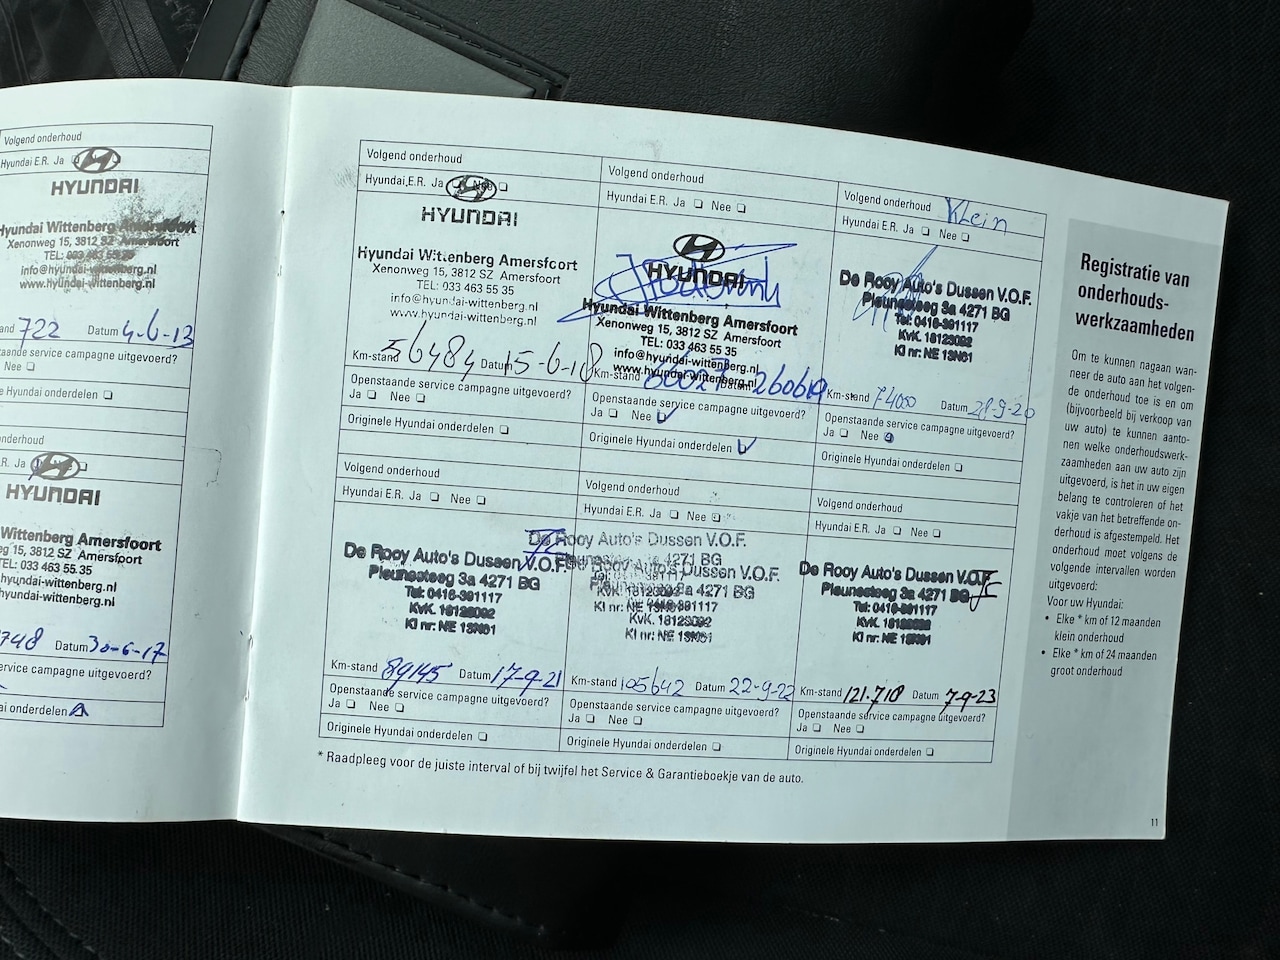 Volgend onderhoud
Hyundai E.R. Ja
HYUNDAI
Hyundai Wittenberg Amersfoort
Xenonweg 15, 3812 SZ Amersfoort
TEL: 033 463 55 35
info@hyundai-wittenberg.nl
www.hyundai-wittenberg.nl
and 722 Datum 4-6-13
taande service campagne uitgevoerd?
Nee
le Hyundai onderdelen
nderhoud
R. Ja
HYUNDAI
Wittenberg Amersfoort
eg 15, 3812 SZ Amersfoort
TEL: 033 463 55 35
hyundai-wittenberg.nl
hyundai-wittenberg.nl
748 Datum 30-6-17
ervice campagne uitgevoerd?
ai onderdelen
Volgend onderhoud
Hyundai E.R. Ja Nee
HYUNDAI
Hyundai Wittenberg Amersfoort
Xenonweg 15, 3812 SZ Amersfoort
TEL: 033 463 55 35
info@hyundai-wittenberg.nl
www.hyundai-wittenberg.nl
Km-stand 56484 Datum 15-6-18
Openstaande service campagne uitgevoerd?
Ja Nee
Originele Hyundai onderdelen
Volgend onderhoud
Hyundai E.R. Ja Nee
HYUNDAI
Hyundai Wittenberg Amersfoort
Xenonweg 15, 3812 SZ Amersfoort
TEL: 033 463 55 35
info@hyundai-wittenberg.nl
www.hyundai-wittenberg.nl
Km-stand 66027 Datum 260619
Openstaande service campagne uitgevoerd?
Ja Nee
Originele Hyundai onderdelen
Volgend onderhoud Klein
Hyundai E.R. Ja Nee
De Rooy Auto's Dussen V.O.F.
Pleunesteeg 3a 4271 BG
Tel: 0416-391117
KvK. 18123092
KI nr: NE 13N61
Km-stand 74000 Datum 28-9-20
Openstaande service campagne uitgevoerd?
Ja Nee
Originele Hyundai onderdelen
Volgend onderhoud
Hyundai E.R. Ja Nee
De Rooy Auto's Dussen V.O.F.
Pleunesteeg 3a 4271 BG
Tel: 0416-391117
KvK. 18123092
KI nr: NE 13N61
Km-stand 89145 Datum 17-9-21
Openstaande service campagne uitgevoerd?
Ja Nee
Originele Hyundai onderdelen
Volgend onderhoud
Hyundai E.R. Ja Nee
De Rooy Auto's Dussen V.O.F.
Pleunesteeg 3a 4271 BG
De Rooy Auto's Dussen V.O.F.
Pleunesteeg 3a 4271 BG
Tel: 0416-391117
KvK. 18123092
KI nr: NE 13N61
Km-stand 105642 Datum 22-9-22
Openstaande service campagne uitgevoerd?
Ja Nee
Originele Hyundai onderdelen
Volgend onderhoud
Hyundai E.R. Ja Nee
De Rooy Auto's Dussen V.O.F.
Pleunesteeg 3a 4271 BG
Tel: 0416-391117
KvK. 18123092
KI nr: NE 13N61
Km-stand 121.718 Datum 7-9-23
Openstaande service campagne uitgevoerd?
Ja Nee
Originele Hyundai onderdelen
* Raadpleeg voor de juiste interval of bij twijfel het Service & Garantieboekje van de auto.
Registratie van
onderhouds-
werkzaamheden
Om te kunnen nagaan wan-
neer de auto aan het volgen-
de onderhoud toe is en om
(bijvoorbeeld bij verkoop van
uw auto) te kunnen aanto-
nen welke onderhoudswerk-
zaamheden aan uw auto zijn
uitgevoerd, is het in uw eigen
belang te controleren of het
vakje van het betreffende on-
derhoud is afgestempeld. Het
onderhoud moet volgens de
volgende intervallen worden
uitgevoerd:
Voor uw Hyundai:
• Elke * km of 12 maanden
klein onderhoud
• Elke * km of 24 maanden
groot onderhoud
11